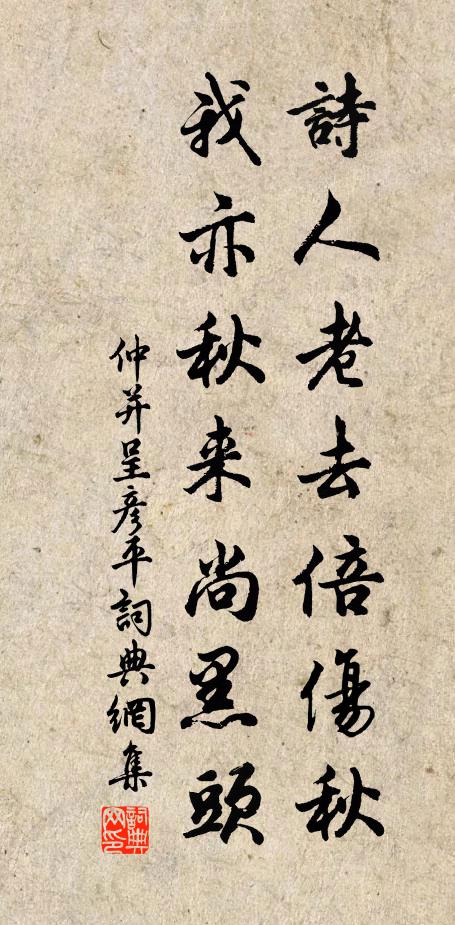 詩人老去倍傷秋
我亦秋来尚黑頭
仲并呈彥平詞典網集
詞典网印